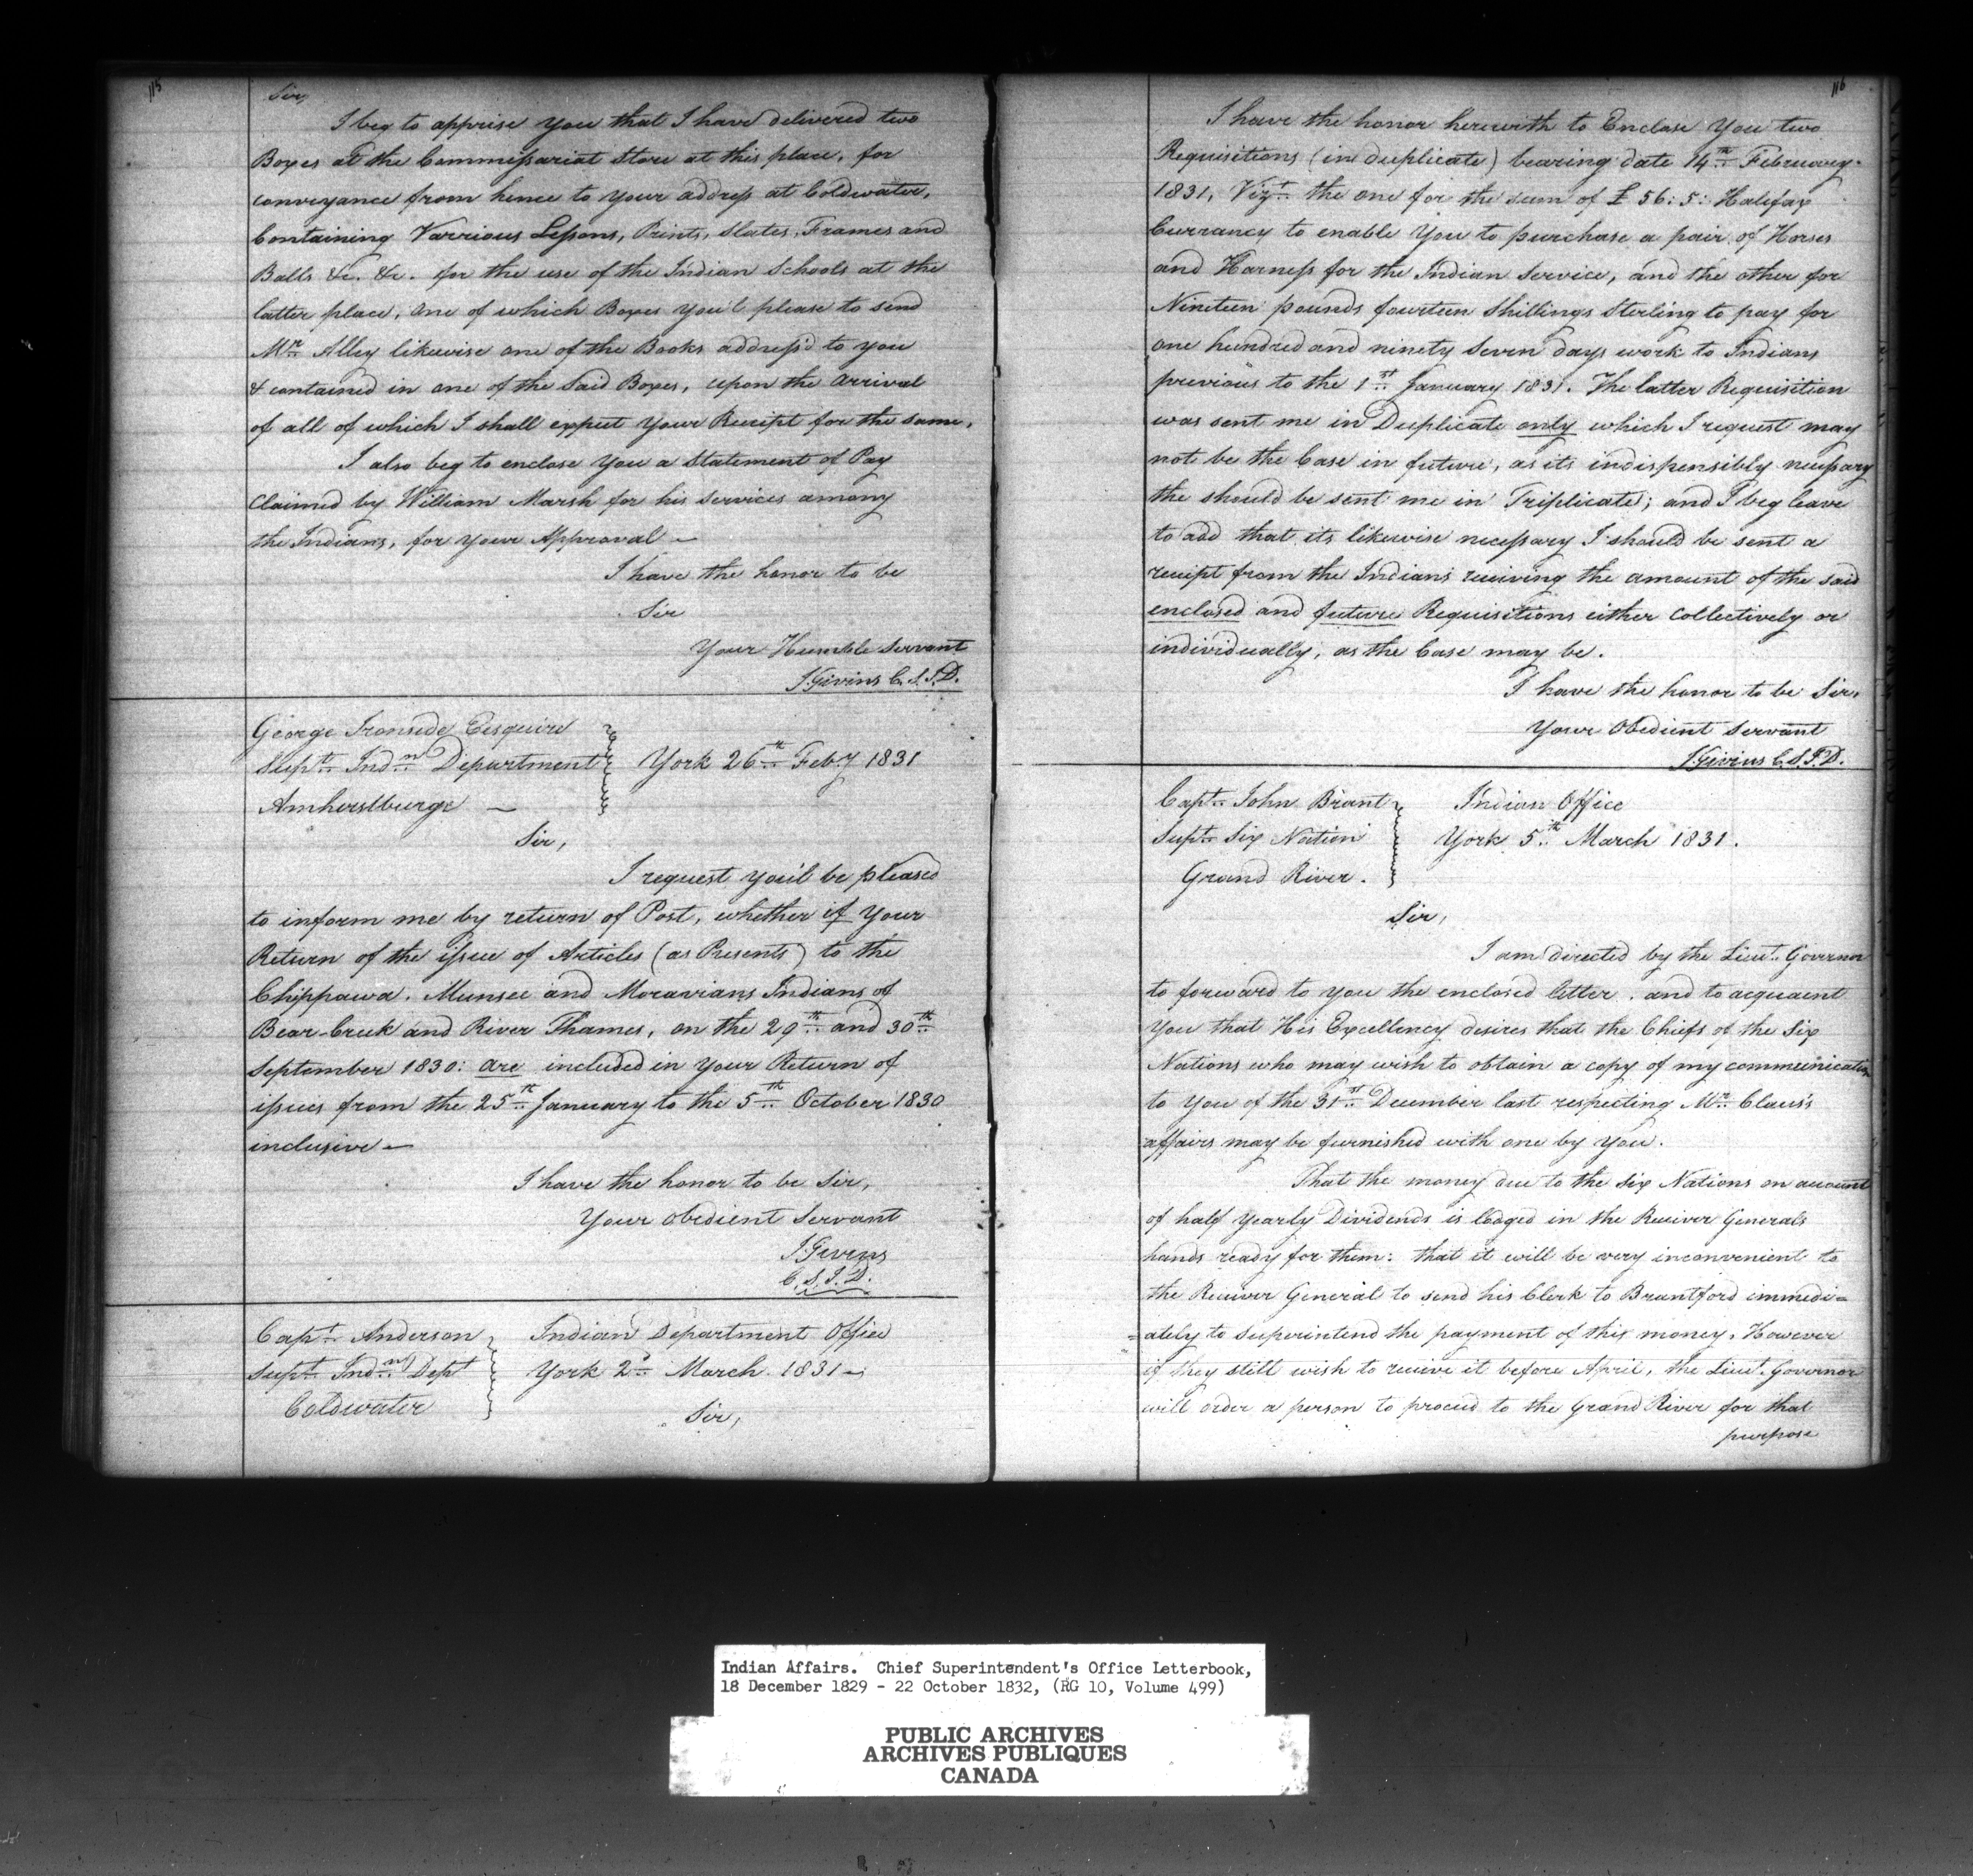 115
Sir,
I beg to apprise You that I have delivered two
Boxes at the Commissariat Store at this place, for
conveyance from hence to your address at Coldwater,
Containing Varrious Lessons, Prints, Slates, Frames and
Balls &c. &c. for the use of the Indian Schools at the
latter place, One of which Boxes you'l please to send
Mr. Alley likewise one of the Books address'd to you
& contained in one of the Said Boxes, upon the arrival
of all of which I shall expect Your Receipt for the same,
I also beg to enclose You a Statement of Pay
Claimed by William Marsh for his services among
the Indians, for your Approval —
I have the honor to be
Sir
Your Humble Servant
J. Givins C.S.I.D.
George Ironside Esquire
Supt. Indn. Department
Amherstburge —
York 26th Feby 1831
Sir,
I request you'l be pleased
to inform me by return of Post, whether if Your
Return of the issue of Articles (as Presents) to the
Chippawa, Munsee and Moravians Indians of
Bear Creek and River Thames, on the 29th and 30th
September 1830: are included in Your Return of
issues from the 25th January to the 5th October 1830
inclusive —
I have the honor to be Sir,
Your obedient Servant
J. Givins
C.S.I.D.
Capt. Anderson
Supt. Indn. Dept
Coldwater
Indian Department Office
York 2d March 1831 —
Sir,
116
I have the honor herewith to Enclose You two
Requisitions (in duplicate) bearing date 14th February
1831, Vizt. the one for the sum of £ 56:5: Halifax
Currancy to enable You to purchase a pair of Horses
and Harness for the Indian Service, and the other for
Nineteen pounds fourteen Shillings Sterling to pay for
one hundred and ninety Seven days work to Indians
previous to the 1st January 1831. The latter Requisition
was sent me in Duplicate only which I request may
not be the Case in future, as its indispensibly necessary
the should be sent me in Triplicate; and I beg leave
to add that its likewise necessary I should be sent a
receipt from the Indians receiving the amount of the said
enclosed and future Requisitions either Collectively or
individually, as the Case may be.
I have the honor to be Sir,
Your Obedient Servant
J. Givins C.S.I.D.
Capt. John Brant
Supt. Six Nation
Grand River.
Indian Office
York 5th March 1831.
Sir,
I am directed by the Lieut. Governor
to forward to you the enclosed letter, and to acquaent
You that His Excellency desires that the Chiefs of the Six
Nations who may wish to obtain a copy of my communication
to You of the 31st December last respecting Mr. Claus's
affairs may be furnished with one by You.
That the money due to the Six Nations on account
of half Yearly Dividends is lodged in the Receiver Generals
hands ready for them: that it will be very inconvenient to
the Receiver General to send his Clerk to Brantford immedi=
=ately to Superintend the payment of this money, However
if they still wish to receive it before April, the Lieut. Governor
will order a person to proceed to the Grand River for that
purpose
Indian Affairs. Chief Superintendent's Office Letterbook,
18 December 1829 - 22 October 1832, (RG 10, Volume 499)
PUBLIC ARCHIVES
ARCHIVES PUBLIQUES
CANADA